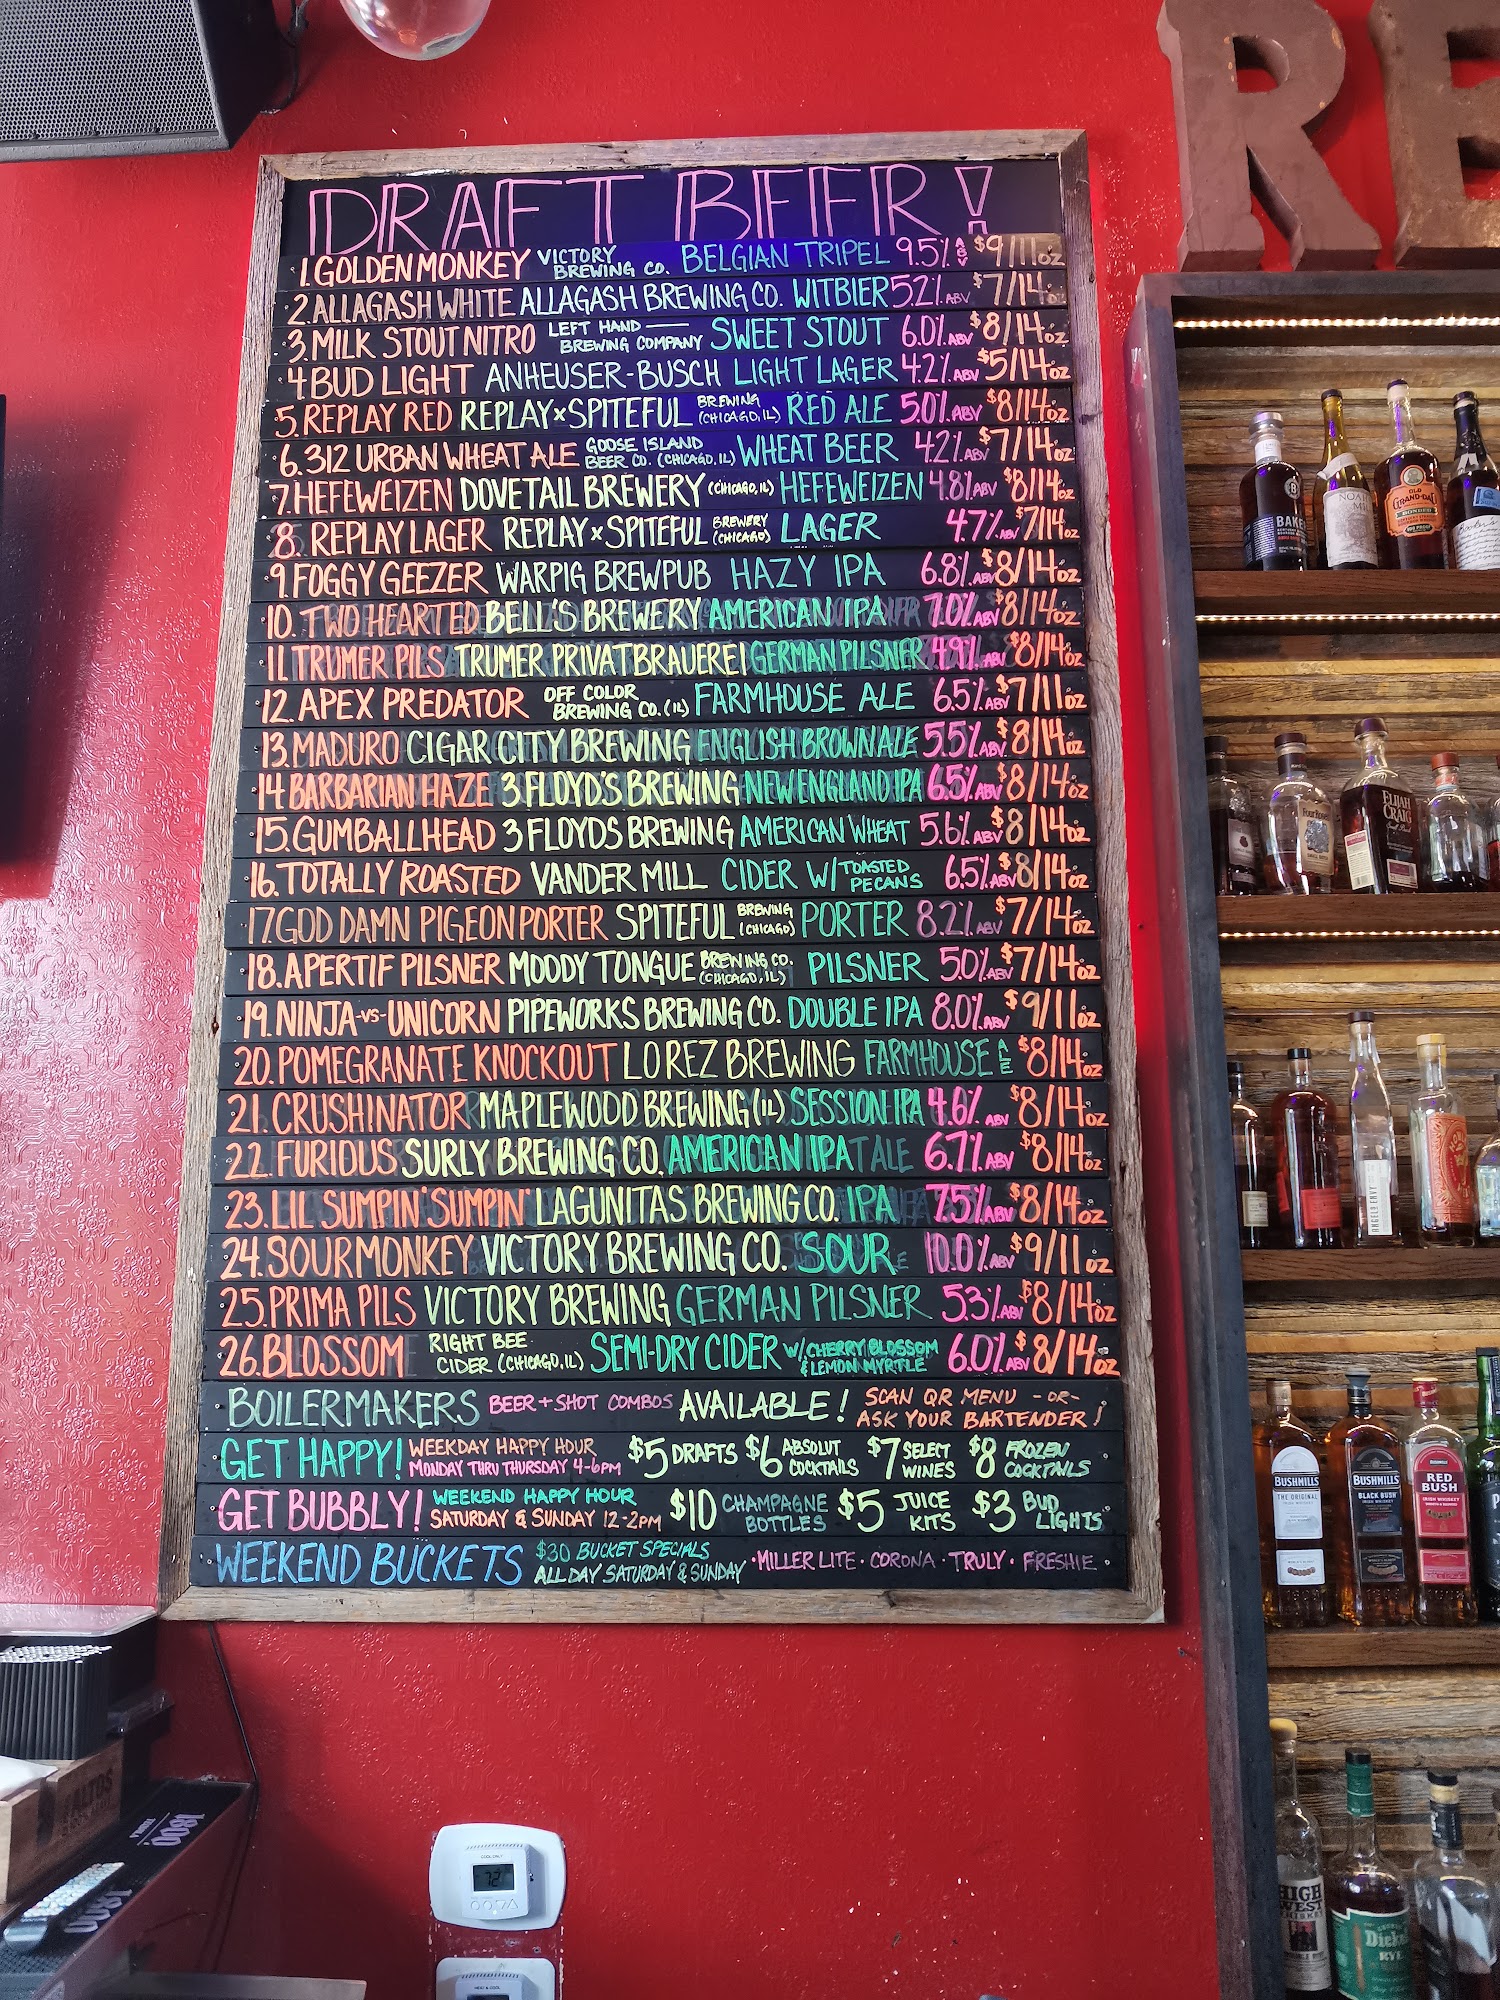 RE
DRAFT BEER!
1. GOLDEN MONKEY VICTORY BREWING CO. BELGIAN TRIPEL 9.5% ABV $9/11oz
2. ALLAGASH WHITE ALLAGASH BREWING CO. WITBIER 5.2% ABV $7/14oz
3. MILK STOUT NITRO LEFT HAND BREWING COMPANY SWEET STOUT 6.0% ABV $8/14oz
4 BUD LIGHT ANHEUSER-BUSCH LIGHT LAGER 4.2% ABV $5/14oz
5. REPLAY RED REPLAY x SPITEFUL BREWING (CHICAGO, IL) RED ALE 5.0% ABV $8/14oz
6. 312 URBAN WHEAT ALE GOOSE ISLAND BEER CO. (CHICAGO, IL) WHEAT BEER 4.2% ABV $7/14oz
7. HEFEWEIZEN DOVETAIL BREWERY (CHICAGO, IL) HEFEWEIZEN 4.8% ABV $8/14oz
8. REPLAY LAGER REPLAY x SPITEFUL BREWERY (CHICAGO) LAGER 4.7% ABV $7/14oz
9. FOGGY GEEZER WARPIG BREWPUB HAZY IPA 6.8% ABV $8/14oz
10. TWO HEARTED BELL'S BREWERY AMERICAN IPA 7.0% ABV $8/14oz
11. TRUMER PILS TRUMER PRIVATBRAUEREI GERMAN PILSNER 4.9% ABV $8/14oz
12. APEX PREDATOR OFF COLOR BREWING CO. (IL) FARMHOUSE ALE 6.5% ABV $7/11oz
13. MADURO CIGAR CITY BREWING ENGLISH BROWN ALE 5.5% ABV $8/14oz
14 BARBARIAN HAZE 3 FLOYD'S BREWING NEW ENGLAND IPA 6.5% ABV $8/14oz
15. GUMBALLHEAD 3 FLOYDS BREWING AMERICAN WHEAT 5.6% ABV $8/14oz
16. TOTALLY ROASTED VANDER MILL CIDER W/ TOASTED PECANS 6.5% ABV $8/14oz
17. GOD DAMN PIGEON PORTER SPITEFUL BREWING (CHICAGO) PORTER 8.2% ABV $7/14oz
18. APERTIF PILSNER MOODY TONGUE BREWING CO. (CHICAGO, IL) PILSNER 5.0% ABV $7/14oz
19. NINJA -VS- UNICORN PIPEWORKS BREWING CO. DOUBLE IPA 8.0% ABV $9/11oz
20. POMEGRANATE KNOCKOUT LO REZ BREWING FARMHOUSE ALE $8/14oz
21. CRUSHINATOR MAPLEWOOD BREWING (IL) SESSION IPA 4.6% ABV $8/14oz
22. FURIOUS SURLY BREWING CO. AMERICAN IPA TALE 6.7% ABV $8/14oz
23. LIL SUMPIN' SUMPIN' LAGUNITAS BREWING CO. IPA 7.5% ABV $8/14oz
24. SOUR MONKEY VICTORY BREWING CO. SOUR 10.0% ABV $9/11oz
25. PRIMA PILS VICTORY BREWING GERMAN PILSNER 5.3% ABV $8/14oz
26. BLOSSOM RIGHT BEE CIDER (CHICAGO, IL) SEMI-DRY CIDER W/ CHERRY BLOSSOM & LEMON MYRTLE 6.0% ABV $8/14oz
BOILERMAKERS BEER + SHOT COMBOS AVAILABLE! SCAN QR MENU -OR- ASK YOUR BARTENDER!
GET HAPPY! WEEKDAY HAPPY HOUR MONDAY THRU THURSDAY 4-6PM $5 DRAFTS $6 ABSOLUT COCKTAILS $7 SELECT WINES $8 FROZEN COCKTAILS
GET BUBBLY! WEEKEND HAPPY HOUR SATURDAY & SUNDAY 12-2PM $10 CHAMPAGNE BOTTLES $5 JUICE KITS $3 BUD LIGHTS
WEEKEND BUCKETS $30 BUCKET SPECIALS ALL DAY SATURDAY & SUNDAY • MILLER LITE • CORONA • TRULY • FRESHIE •
OLD
GRAND-DAD
BONDED
ELIJAH
CRAIG
BUSHMILLS
THE ORIGINAL
BUSHMILLS
BLACK BUSH
RED
BUSH
HIGH
WEST
RYE
1800
1800
COOL ONLY
72